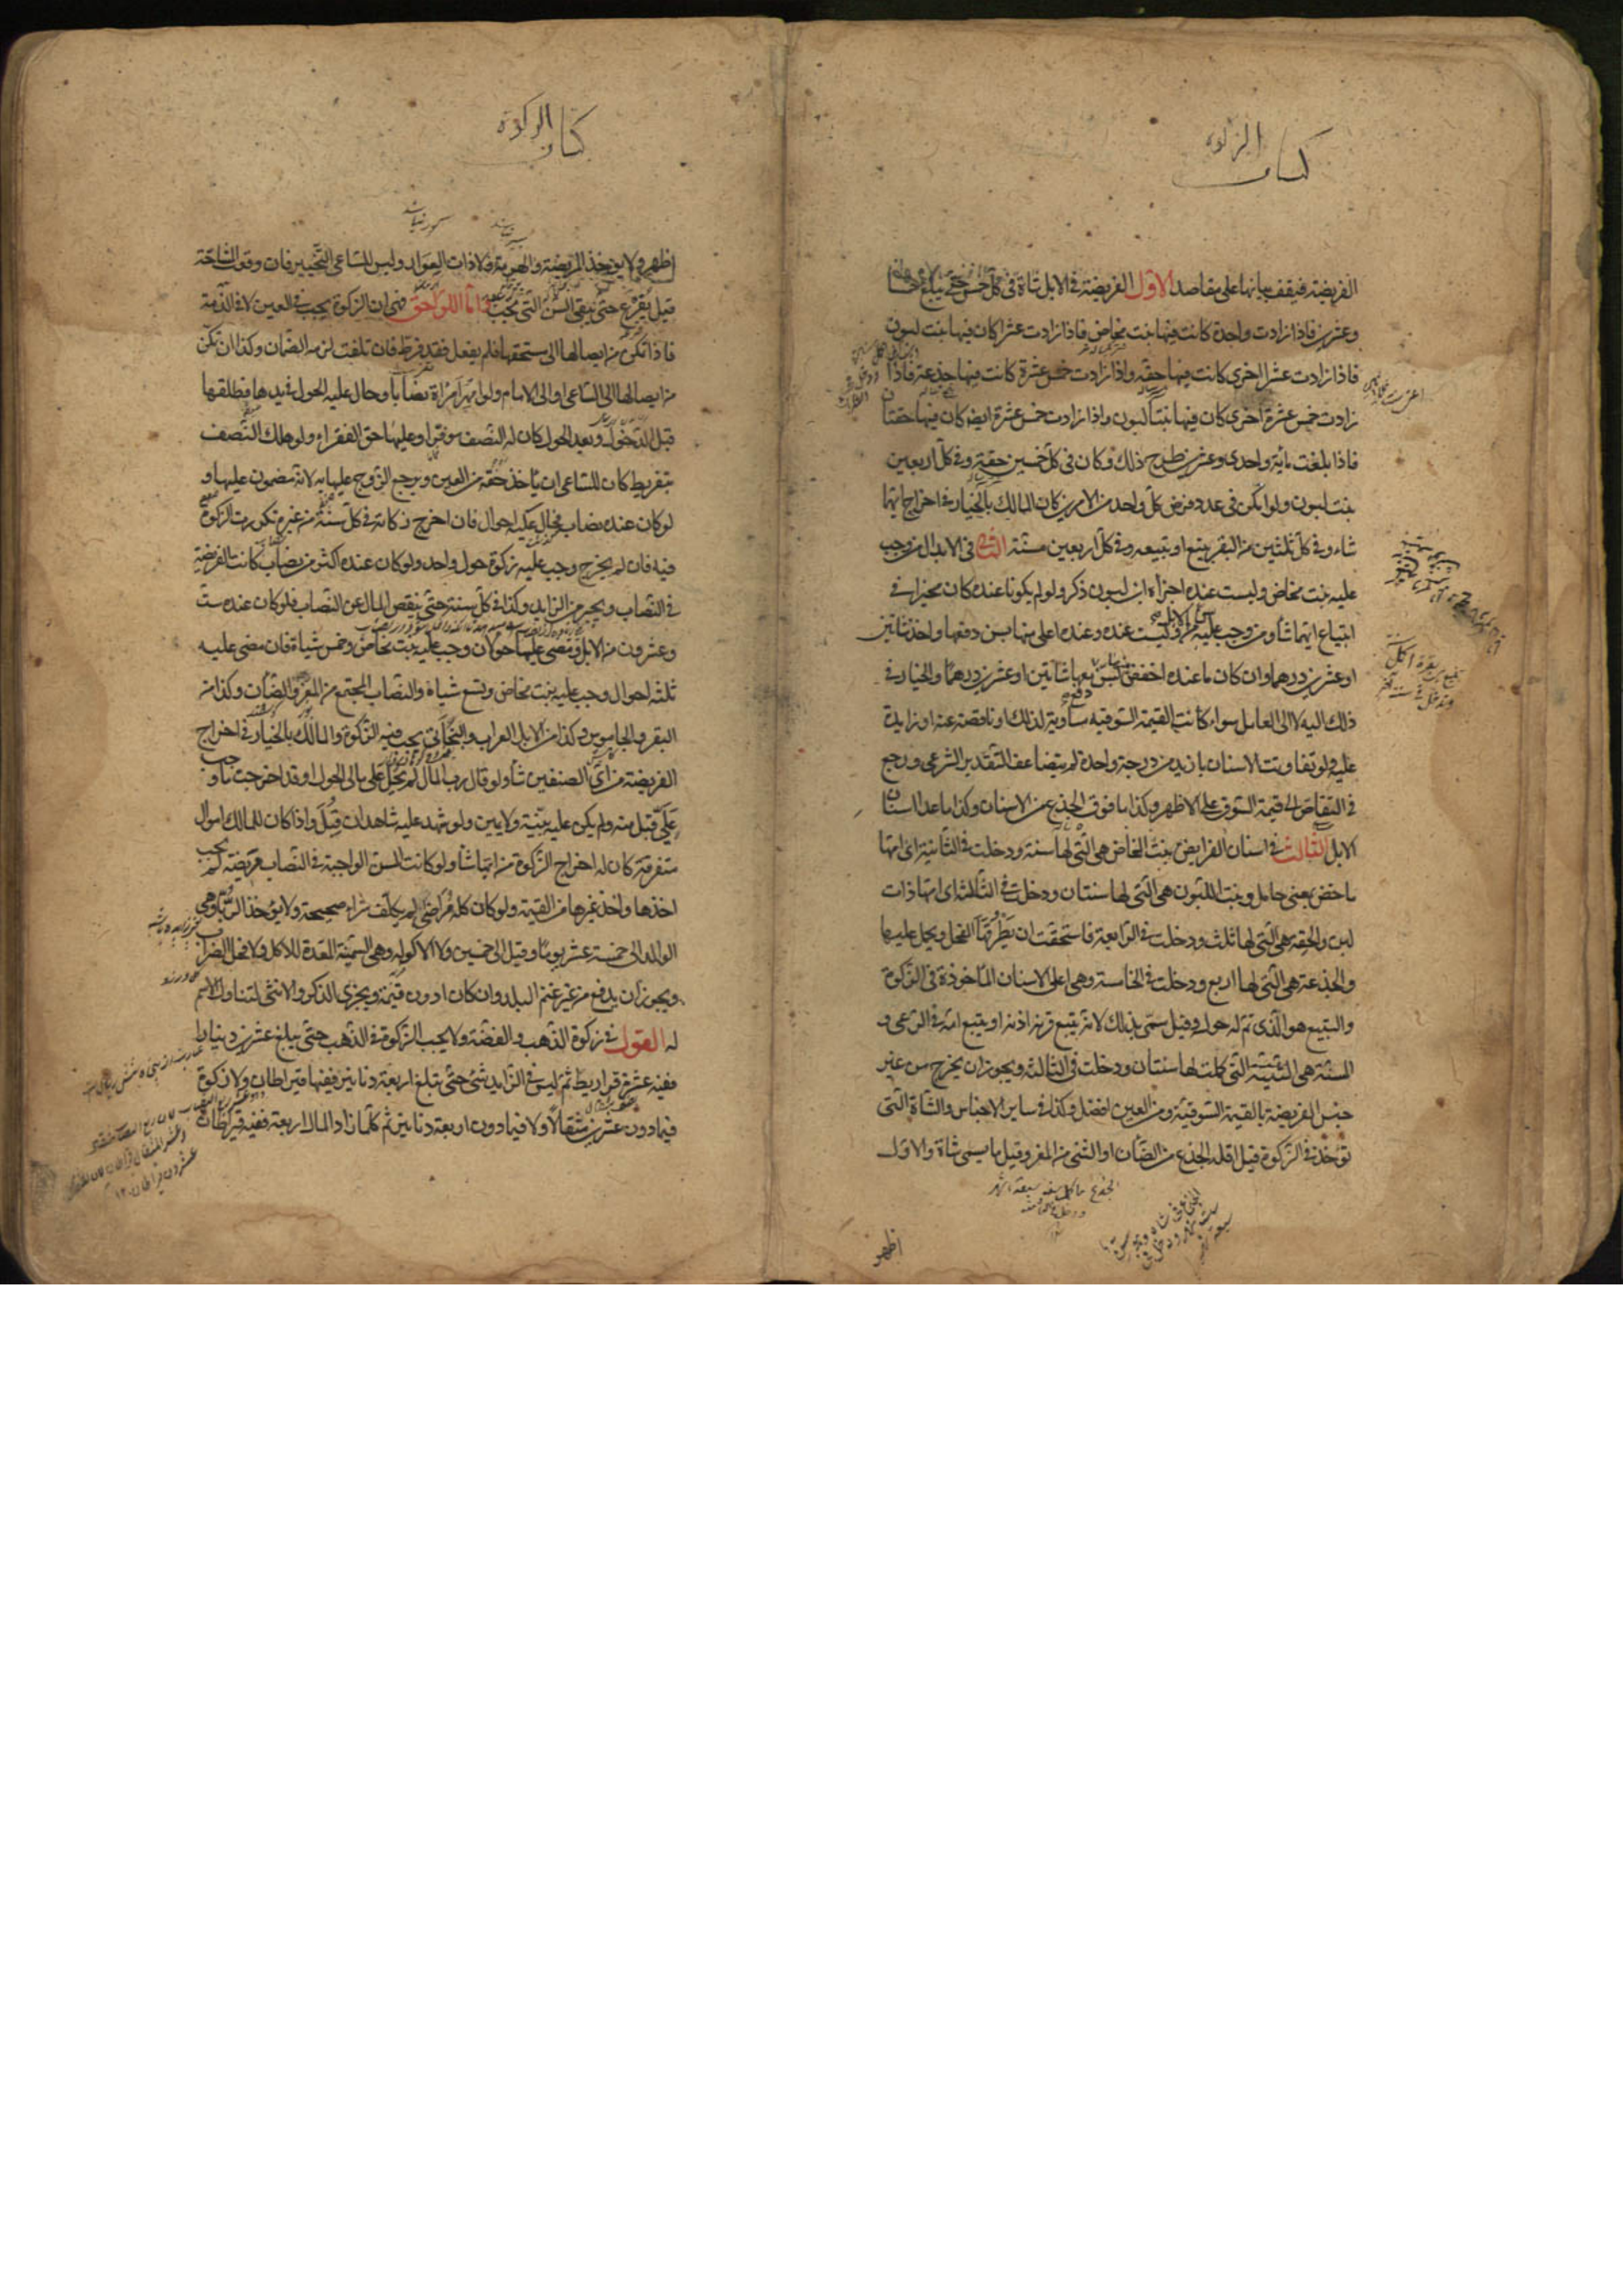 كتاب الزكوة
الفريضة فيقف بيانها على مقاصد الاول الفريضة فى الابل شاة فى كل خمس حتى يبلغ خمسا
وعشرين فاذا زادت واحدة كانت فيها بنت مخاض فاذا زادت عشرا كان فيها بنت لبون
فاذا زادت عشرا اخرى كانت فيها حقه واذا زادت خمس عشرة كانت فيها جذعة فاذا
زادت خمس عشرة اخرى كان فيها بنتا لبون واذا زادت خمس عشرة ايضا كان فيها حقتان
فاذا بلغت مائة واحدى وعشرين طرح ذلك وكان فى كل خمسين حقة وفى كل اربعين
بنت لبون ولو امكن فى عدد فرض كل واحد من الامرين كان المالك بالخيار فى اخراج ايهما
شاء وفى كل ثلثين من البقر تبيع او تبيعه وفى كل اربعين مسنة الثانى فى الابدال من وجب
عليه بنت مخاض وليست عنده اجزأه ابن لبون ذكر ولو لم يكونا عنده كان مخيرا فى
ابتياع ايهما شاء ومن وجب عليه وليست عنده وعنده اعلى منها بسن دفعها واخذ شاتين
او عشرين درهما وان كان ما عنده اخفض بسن دفع معها شاتين او عشرين درهما والخيار فى
ذلك اليه لا الى العامل سواء كانت القيمة السوقيه مساوية لذلك او ناقصة عنه او زايدة
عليه ولو تفاوتت الاسنان بازيد من درجة واحدة لم يتضاعف التقدير الشرعى ورجع
فى التقاص الى قيمة السوق على الاظهر وكذا ما فوق الجذع من الاسنان وكذا ما عدا اسنان
الابل الثالث فى اسنان الفرايض بنت المخاض هى التى لها سنة ودخلت فى الثانية اى امها
ماخض بمعنى حامل وبنت اللبون هى التى لها سنتان ودخلت فى الثالثة اى امها ذات
لبن والحقة هى التى لها ثلث ودخلت فى الرابعة فاستحقت ان يطرقها الفحل ويحمل عليها
والجذعة هى التى لها اربع ودخلت فى الخامسة وهى اعلى الاسنان المأخوذة فى الزكوة
والتبيع هو الذى تم له حول وقيل سمى بذلك لانه يتبع قرنه اذنه او يتبع امه فى الرعى و
المسنة هى الثنية التى كملت لها سنتان ودخلت فى الثالثة ويجوز ان يخرج من غير
جنس الفريضة بالقيمة السوقية ومن العين افضل وكذا فى ساير الاجناس والشاة التى
تؤخذ فى الزكوة قيل اقله الجذع من الضأن او الثنى من المعز وقيل ما يسمى شاة والاول
اظهر
كتاب الزكوة
اظهر ولا يؤخذ المريضة ولا الهرمة ولا ذات العوار وليس للساعى التخيير فان وقعت المشاحة
قيل يقرع حتى تبقى السن التى تجب واما اللواحق فهى ان الزكوة يجب فى العين لا فى الذمة
فاذا تمكن من ايصالها الى مستحقها فلم يفعل فقد فرط فان تلفت لزمه الضمان وكذا ان تمكن
من ايصالها الى الساعى او الى الامام ولو امهر امراة نصابا وحال عليه الحول فى يدها فطلقها
قبل الدخول وبعد الحول كان له النصف موفرا وعليها حق الفقراء ولو هلك النصف
بتفريط كان للساعى ان يأخذ حقه من العين ويرجع الزوج عليها به لانه مضمون عليها و
لو كان عنده نصاب فحال عليه احوال فان اخرج زكاته فى كل سنة من غيره تكررت الزكوة
فيه فان لم يخرج وجب عليه زكوة حول واحد ولو كان عنده اكثر من نصاب كانت الفريضة
فى النصاب ويجبر من الزايد وكذا فى كل سنة حتى ينقص المال عن النصاب فلو كان عنده ست
وعشرون من الابل ومضى عليها حولان وجب عليه بنت مخاض وخمس شياة فان مضى عليه
ثلثه احوال وجب عليه بنت مخاض وتسع شياة والنصاب المجتمع من المعز والضأن وكذا من
البقر والجاموس وكذا من الابل العراب والبخاتى يجب فيه الزكوة والمالك بالخيار فى اخراج
الفريضة من اى الصنفين شاء ولو قال رب المال لم يحل على مالى الحول او قد اخرجت ما وجب
على قبل منه ولم يكن عليه بينة ولا يمين ولو شهد عليه شاهدان قبل واذا كان للمالك اموال
متفرقة كان له اخراج الزكوة من ايها شاء ولو كانت السن الواجبة فى النصاب مريضة لم يجب
اخذها واخذ غيرها من القيمة ولو كان كله مراضى لم يكلف شراء صحيحة ولا يؤخذ الربى وهى
الوالد الى خمسة عشر يوما وقيل الى خمسين ولا الاكولة وهى السمينة المعدة للاكل ولا فحل الضراب
ويجوز ان يدفع من غير غنم البلد وان كان ادون قيمة ويجزى الذكر والانثى لتناول الاسم
له القول فى زكوة الذهب والفضة ولا يجب الزكوة فى الذهب حتى يبلغ عشرين دينارا
ففيه عشرة قراريط ثم ليس فى الزايد شئ حتى تبلغ اربعة دنانير ففيها قيراطان ولا زكوة
فيما دون عشرين مثقالا ولا فيما دون اربعة دنانير ثم كلما زاد المال اربعة ففيه قيراطان